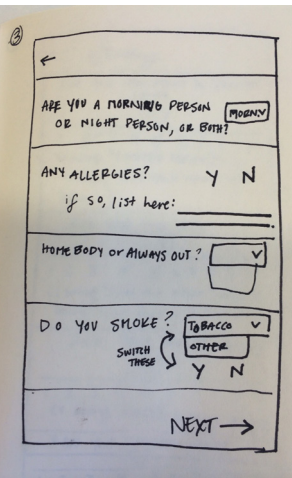 3
←
ARE YOU A MORNING PERSON
OR NIGHT PERSON, OR BOTH?
MORN.
ANY ALLERGIES? Y N
if so, list here:
HOMEBODY or ALWAYS OUT?
DO YOU SMOKE? TOBACCO
OTHER
SWITCH
THESE
Y N
NEXT →